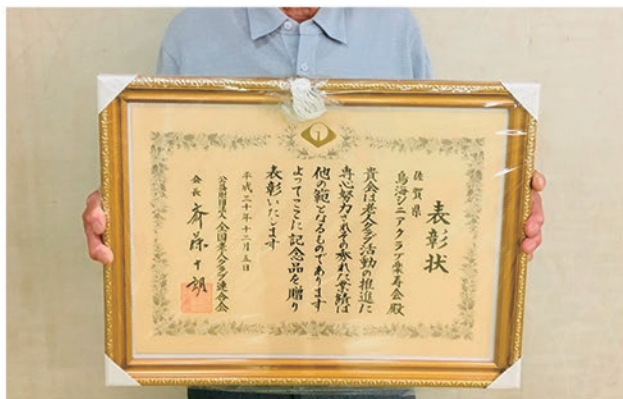 表彰状
佐賀県
鳥海シニアクラブ楽寿会殿
貴会は老人クラブ活動の推進に
専心努力されその秀れた業績は
他の範となるものであります
よってここに記念品を贈り
表彰いたします
平成三十年十二月五日
公益財団法人全国老人クラブ連合会
会長 斎藤十朗